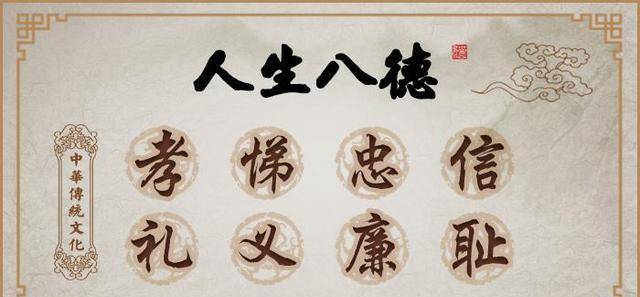 人生八德
中華傳統文化
孝悌忠信
礼义廉耻